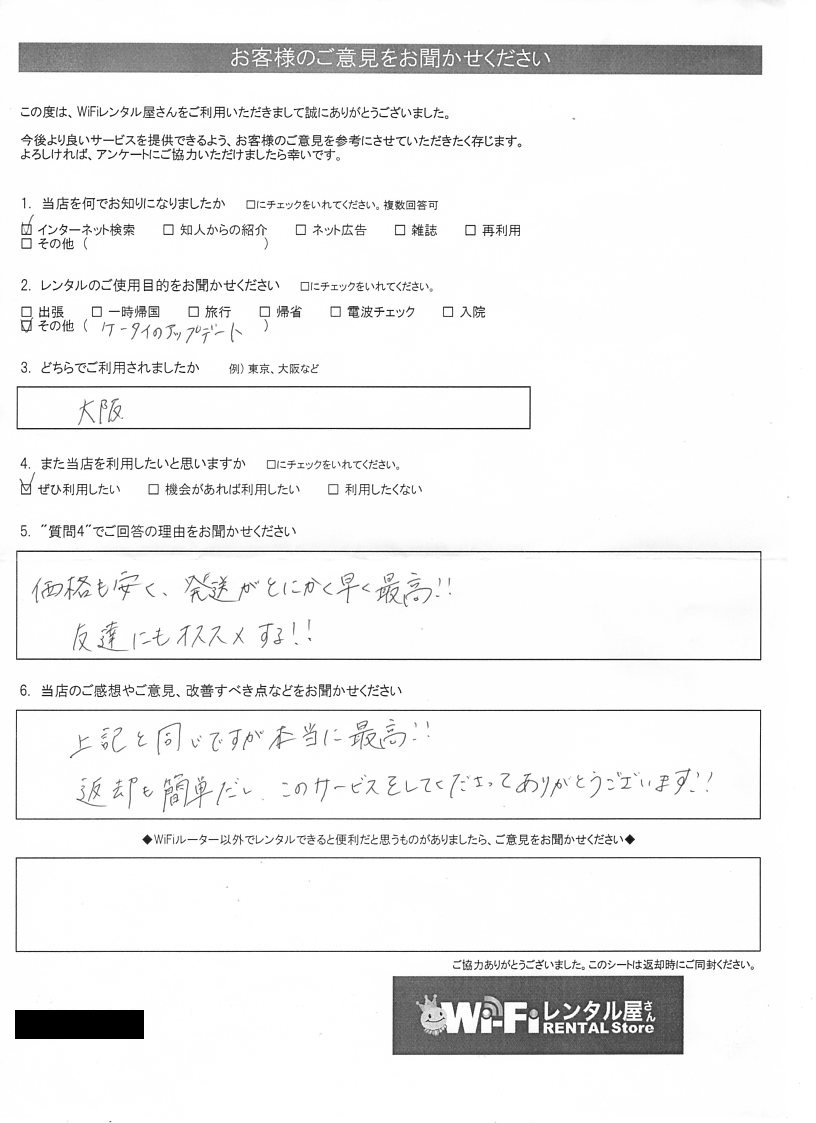 お客様のご意見をお聞かせください
この度は、WiFiレンタル屋さんをご利用いただきまして誠にありがとうございました。
今後より良いサービスを提供できるよう、お客様のご意見を参考にさせていただきたく存じます。
よろしければ、アンケートにご協力いただけましたら幸いです。
1. 当店を何でお知りになりましたか □にチェックをいれてください。複数回答可
☑ インターネット検索 □ 知人からの紹介 □ ネット広告 □ 雑誌 □ 再利用
□ その他 ( )
2. レンタルのご使用目的をお聞かせください □にチェックをいれてください。
□ 出張 □ 一時帰国 □ 旅行 □ 帰省 □ 電波チェック □ 入院
☑ その他 ( ケータイのアップデート )
3. どちらでご利用されましたか 例)東京、大阪など
大阪
4. また当店を利用したいと思いますか □にチェックをいれてください。
☑ ぜひ利用したい □ 機会があれば利用したい □ 利用したくない
5. "質問4"でご回答の理由をお聞かせください
価格も安く、発送がとにかく早く最高!!
友達にもオススメする!!
6. 当店のご感想やご意見、改善すべき点などをお聞かせください
上記と同じですが本当に最高!!
返却も簡単だし、このサービスをしてくださってありがとうございます!!
◆WiFiルーター以外でレンタルできると便利だと思うものがありましたら、ご意見をお聞かせください◆
ご協力ありがとうございました。このシートは返却時にご同封ください。
Wi-Fiレンタル屋さん
RENTAL Store